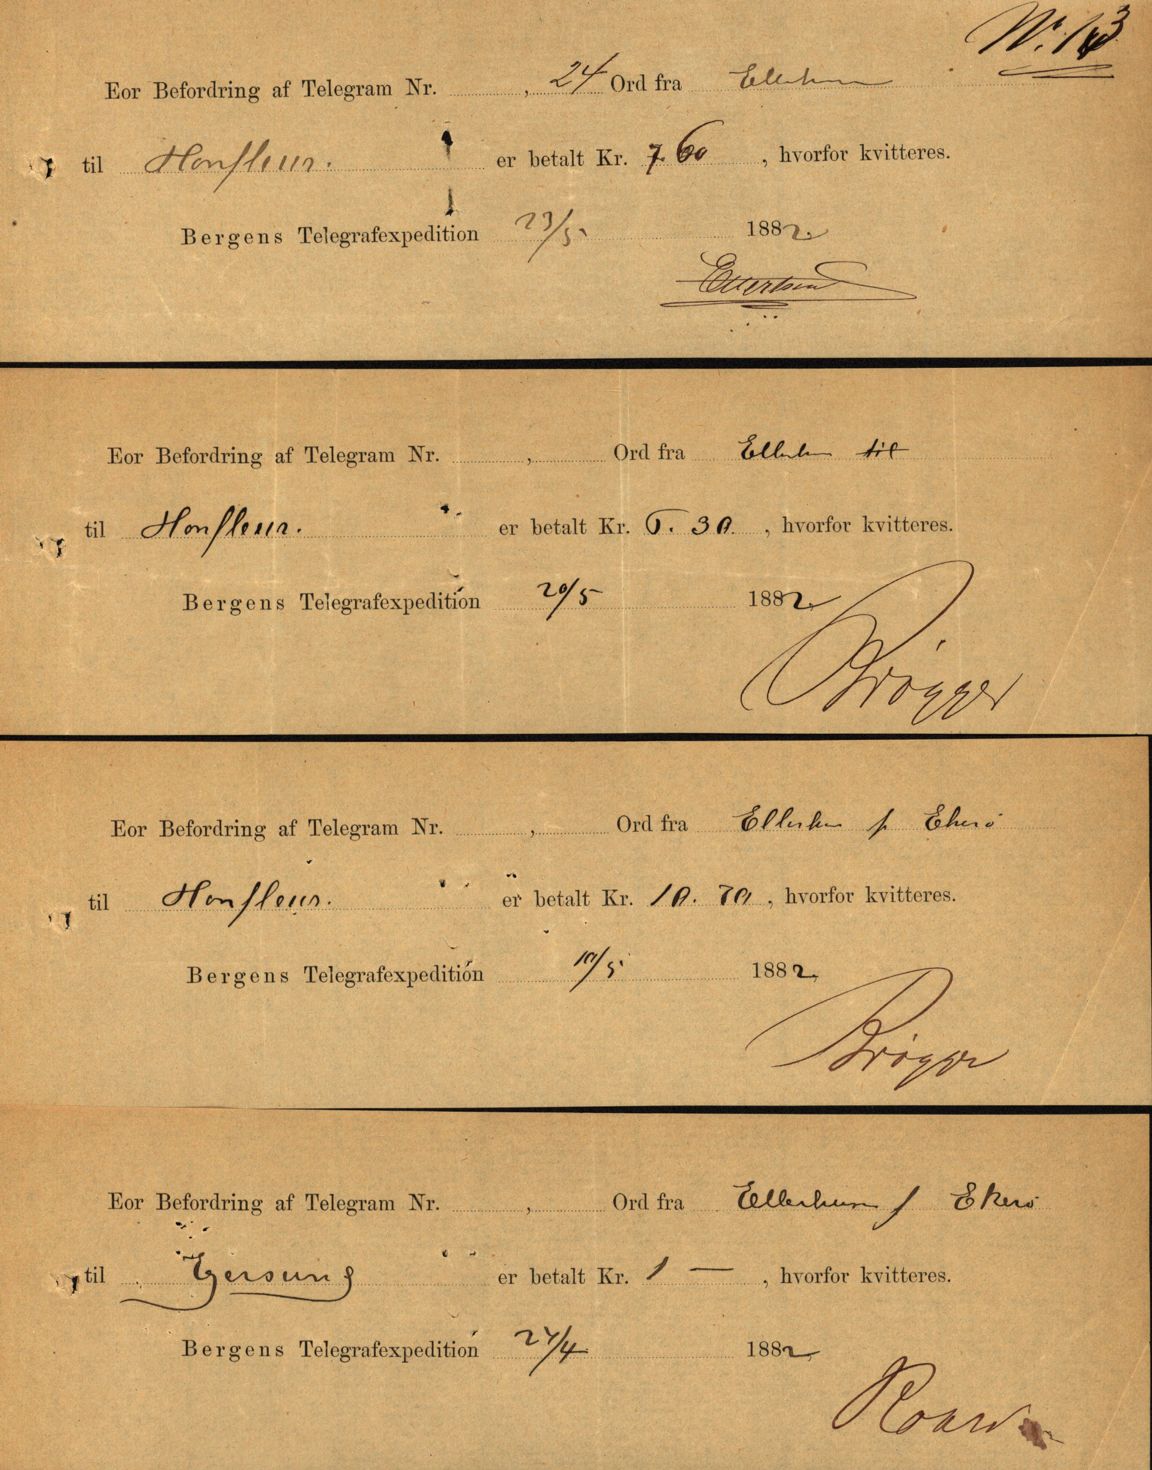 No. 13
Eor Befordring af Telegram Nr. , 24 Ord fra Ellerhusen
til Honfleur. er betalt Kr. 7.60 , hvorfor kvitteres.
Bergens Telegrafexpedition 23/5 1882.
Eor Befordring af Telegram Nr. , Ord fra Ellerhusen til
til Honfleur. er betalt Kr. 6.30. , hvorfor kvitteres.
Bergens Telegrafexpedition 20/5 1882.
Brøgger
Eor Befordring af Telegram Nr. , Ord fra Ellerhusen f Ekerö
til Honfleur. er betalt Kr. 10.70 , hvorfor kvitteres.
Bergens Telegrafexpedition 10/5 1882,
Brøgger
Eor Befordring af Telegram Nr. , Ord fra Ellerhusen f Ekerö
til Egersund er betalt Kr. 1 — , hvorfor kvitteres.
Bergens Telegrafexpedition 27/4 1882,